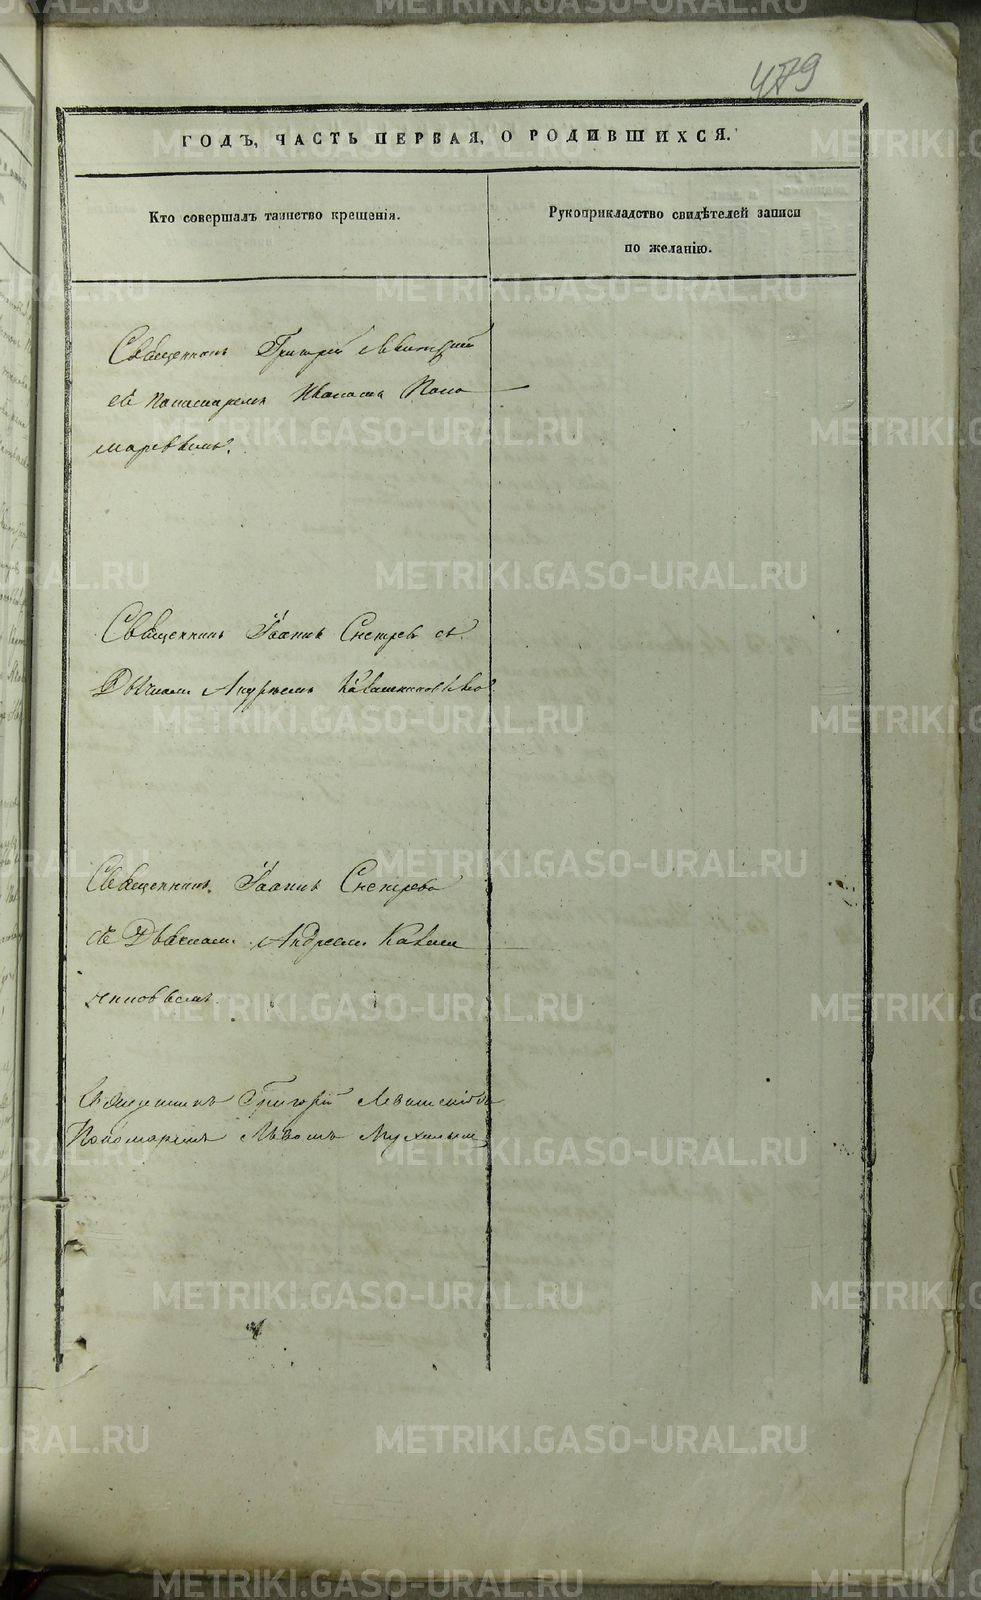 479
ГОДЪ, ЧАСТЬ ПЕРВАЯ, О РОДИВШИХСЯ.
Кто совершалъ таинство крещенія.
Рукоприкладство свидѣтелей записи
по желанію.
Священникъ Григорій Левитскій
съ Пономаремъ Иваномъ Поно
маревымъ.
Священникъ Іоаннъ Снегирев съ
Дьячкомъ Андреемъ
Священникъ Іоаннъ Снегирева
съ Дьячкомъ Андреемъ
Священникъ Григорій Левитскій съ
Пономаремъ Львомъ Мухиным
METRIKI.GASO-URAL.RU